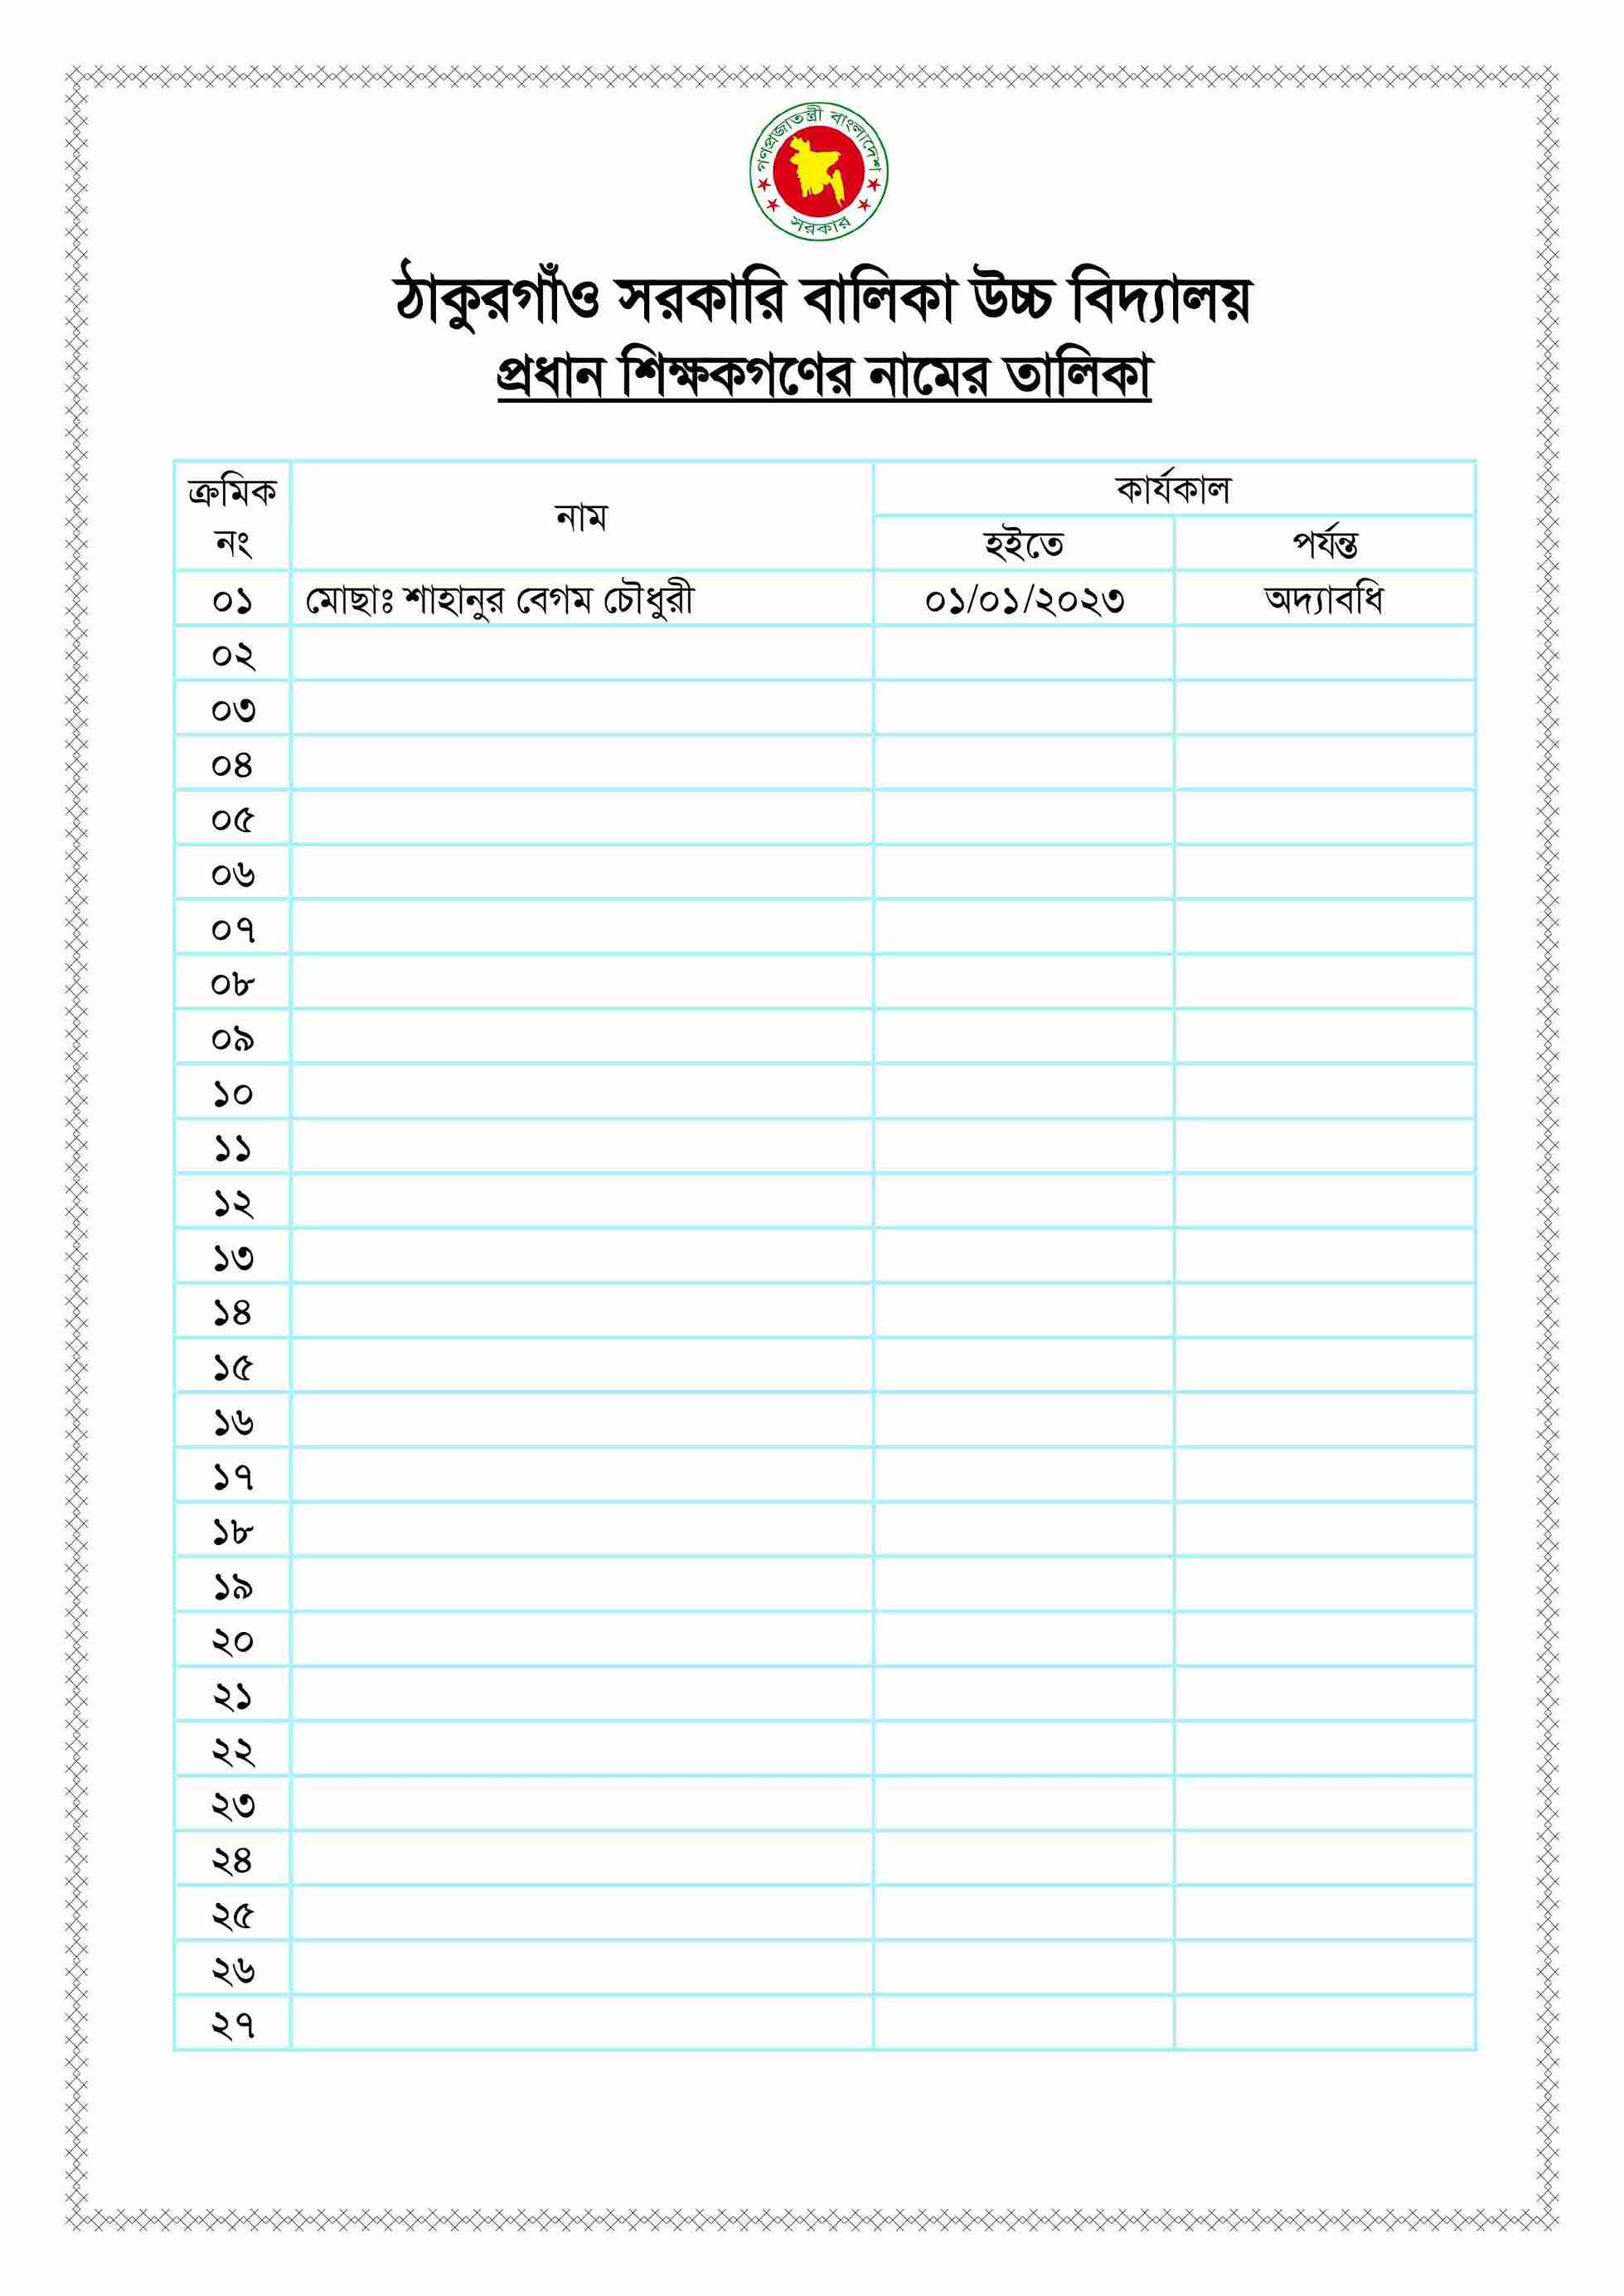 গণপ্রজাতন্ত্রী বাংলাদেশ
সরকার
ঠাকুরগাঁও সরকারি বালিকা উচ্চ বিদ্যালয়
প্রধান শিক্ষকগণের নামের তালিকা
ক্রমিক নং নাম কার্যকাল
হইতে পর্যন্ত
০১ মোছাঃ শাহানুর বেগম চৌধুরী ০১/০১/২০২৩ অদ্যাবধি
০২
০৩
০৪
০৫
০৬
০৭
০৮
০৯
১০
১১
১২
১৩
১৪
১৫
১৬
১৭
১৮
১৯
২০
২১
২২
২৩
২৪
২৫
২৬
২৭